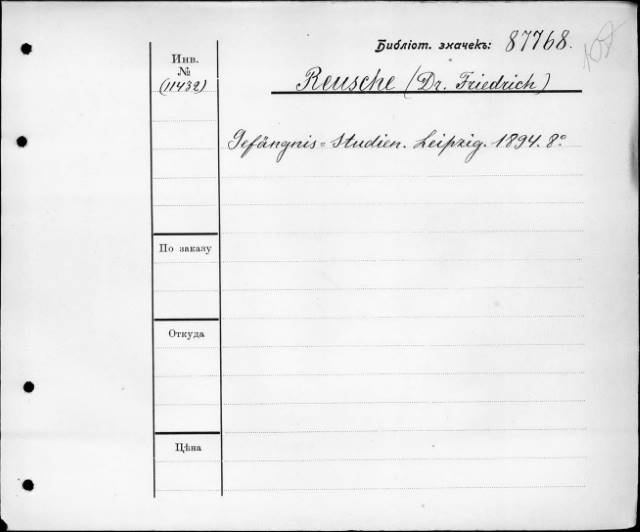 Библіот. значекъ: 87768.
Инв.
№
(11432)
Reusche (Dr. Friedrich)
Gefängnis=Studien. Leipzig. 1894. 8°
По заказу
Откуда
Цѣна